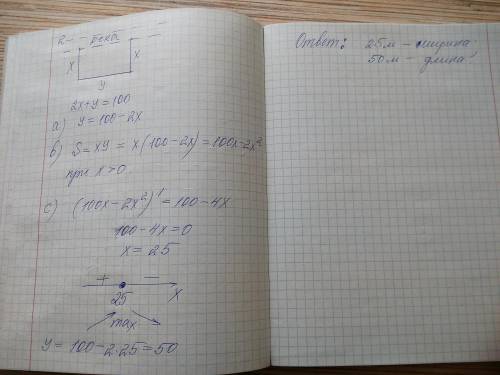 x x
y
2x+y=100
a) y=100-2x
b) S=xy = x(100-2x)=100x-2x²
при x>0
c) (100x-2x²)' = 100-4x
100-4x=0
x=25
+ -
25 x
max
y= 100-2·25=50
Ответ: 25м - ширина
50м - длина